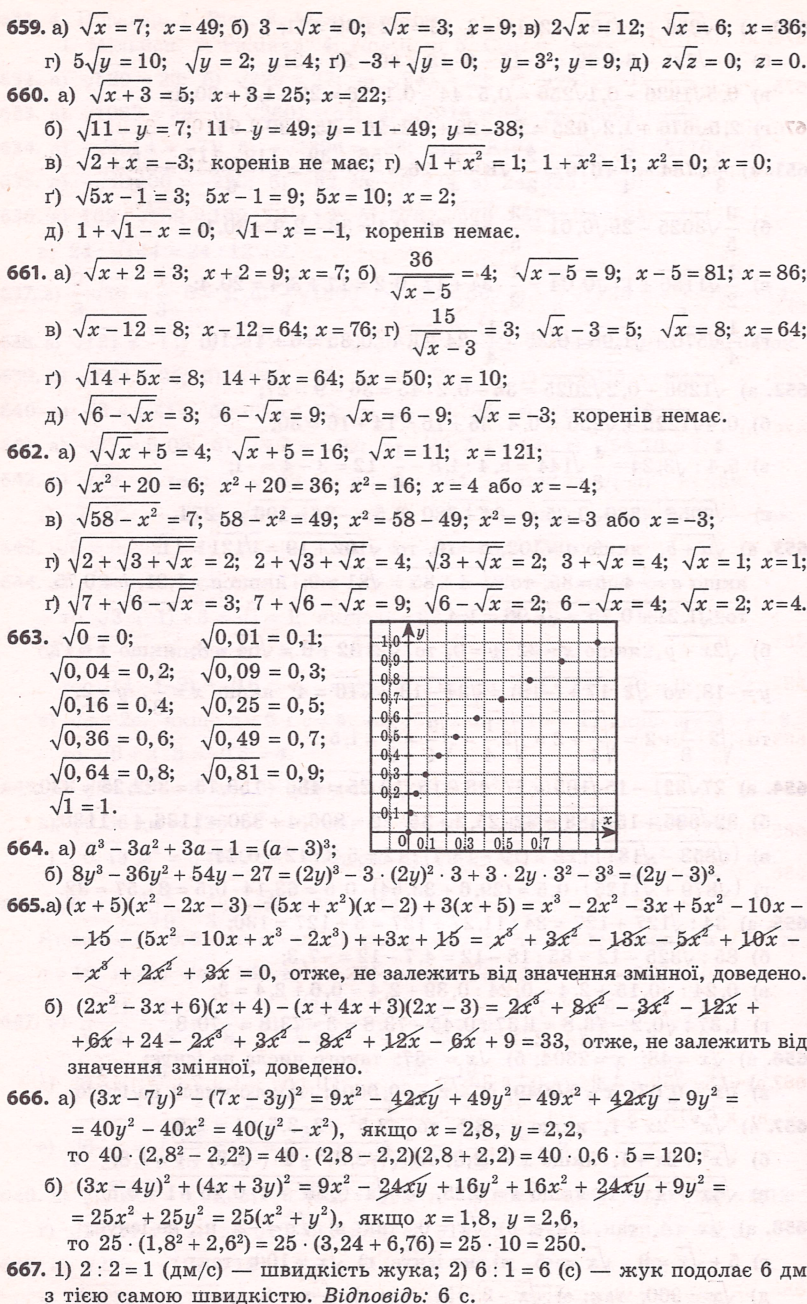 659. а) √x = 7; x = 49; б) 3 − √x = 0; √x = 3; x = 9; в) 2√x = 12; √x = 6; x = 36;
г) 5√y = 10; √y = 2; y = 4; ґ) −3 + √y = 0; y = 3²; y = 9; д) z√z = 0; z = 0.
660. а) √(x + 3) = 5; x + 3 = 25; x = 22;
б) √(11 − y) = 7; 11 − y = 49; y = 11 − 49; y = −38;
в) √(2 + x) = −3; коренів не має; г) √(1 + x²) = 1; 1 + x² = 1; x² = 0; x = 0;
ґ) √(5x − 1) = 3; 5x − 1 = 9; 5x = 10; x = 2;
д) 1 + √(1 − x) = 0; √(1 − x) = −1, коренів немає.
661. а) √(x + 2) = 3; x + 2 = 9; x = 7; б) 36/√(x − 5) = 4; √(x − 5) = 9; x − 5 = 81; x = 86;
в) √(x − 12) = 8; x − 12 = 64; x = 76; г) 15/(√x − 3) = 3; √x − 3 = 5; √x = 8; x = 64;
ґ) √(14 + 5x) = 8; 14 + 5x = 64; 5x = 50; x = 10;
д) √(6 − √x) = 3; 6 − √x = 9; √x = 6 − 9; √x = −3; коренів немає.
662. а) √(√x + 5) = 4; √x + 5 = 16; √x = 11; x = 121;
б) √(x² + 20) = 6; x² + 20 = 36; x² = 16; x = 4 або x = −4;
в) √(58 − x²) = 7; 58 − x² = 49; x² = 58 − 49; x² = 9; x = 3 або x = −3;
г) √(2 + √(3 + √x)) = 2; 2 + √(3 + √x) = 4; √(3 + √x) = 2; 3 + √x = 4; √x = 1; x = 1;
ґ) √(7 + √(6 − √x)) = 3; 7 + √(6 − √x) = 9; √(6 − √x) = 2; 6 − √x = 4; √x = 2; x = 4.
663. √0 = 0; √0,01 = 0,1;
√0,04 = 0,2; √0,09 = 0,3;
√0,16 = 0,4; √0,25 = 0,5;
√0,36 = 0,6; √0,49 = 0,7;
√0,64 = 0,8; √0,81 = 0,9;
√1 = 1.
y
1,0
0,9
0,8
0,7
0,6
0,5
0,4
0,3
0,2
0,1
x
0 0,1 0,3 0,5 0,7 1
664. а) a³ − 3a² + 3a − 1 = (a − 3)³;
б) 8y³ − 36y² + 54y − 27 = (2y)³ − 3 · (2y)² · 3 + 3 · 2y · 3² − 3³ = (2y − 3)³.
665.а) (x + 5)(x² − 2x − 3) − (5x + x²)(x − 2) + 3(x + 5) = x³ − 2x² − 3x + 5x² − 10x −
−15 − (5x² − 10x + x³ − 2x³) + +3x + 15 = x³ + 3x² − 13x − 5x² + 10x −
−x³ + 2x² + 3x = 0, отже, не залежить від значення змінної, доведено.
б) (2x² − 3x + 6)(x + 4) − (x + 4x + 3)(2x − 3) = 2x³ + 8x² − 3x² − 12x +
+6x + 24 − 2x³ + 3x² − 8x² + 12x − 6x + 9 = 33, отже, не залежить від
значення змінної, доведено.
666. а) (3x − 7y)² − (7x − 3y)² = 9x² − 42xy + 49y² − 49x² + 42xy − 9y² =
= 40y² − 40x² = 40(y² − x²), якщо x = 2,8, y = 2,2,
то 40 · (2,8² − 2,2²) = 40 · (2,8 − 2,2)(2,8 + 2,2) = 40 · 0,6 · 5 = 120;
б) (3x − 4y)² + (4x + 3y)² = 9x² − 24xy + 16y² + 16x² + 24xy + 9y² =
= 25x² + 25y² = 25(x² + y²), якщо x = 1,8, y = 2,6,
то 25 · (1,8² + 2,6²) = 25 · (3,24 + 6,76) = 25 · 10 = 250.
667. 1) 2 : 2 = 1 (дм/с) — швидкість жука; 2) 6 : 1 = 6 (с) — жук подолає 6 дм
з тією самою швидкістю. Відповідь: 6 с.